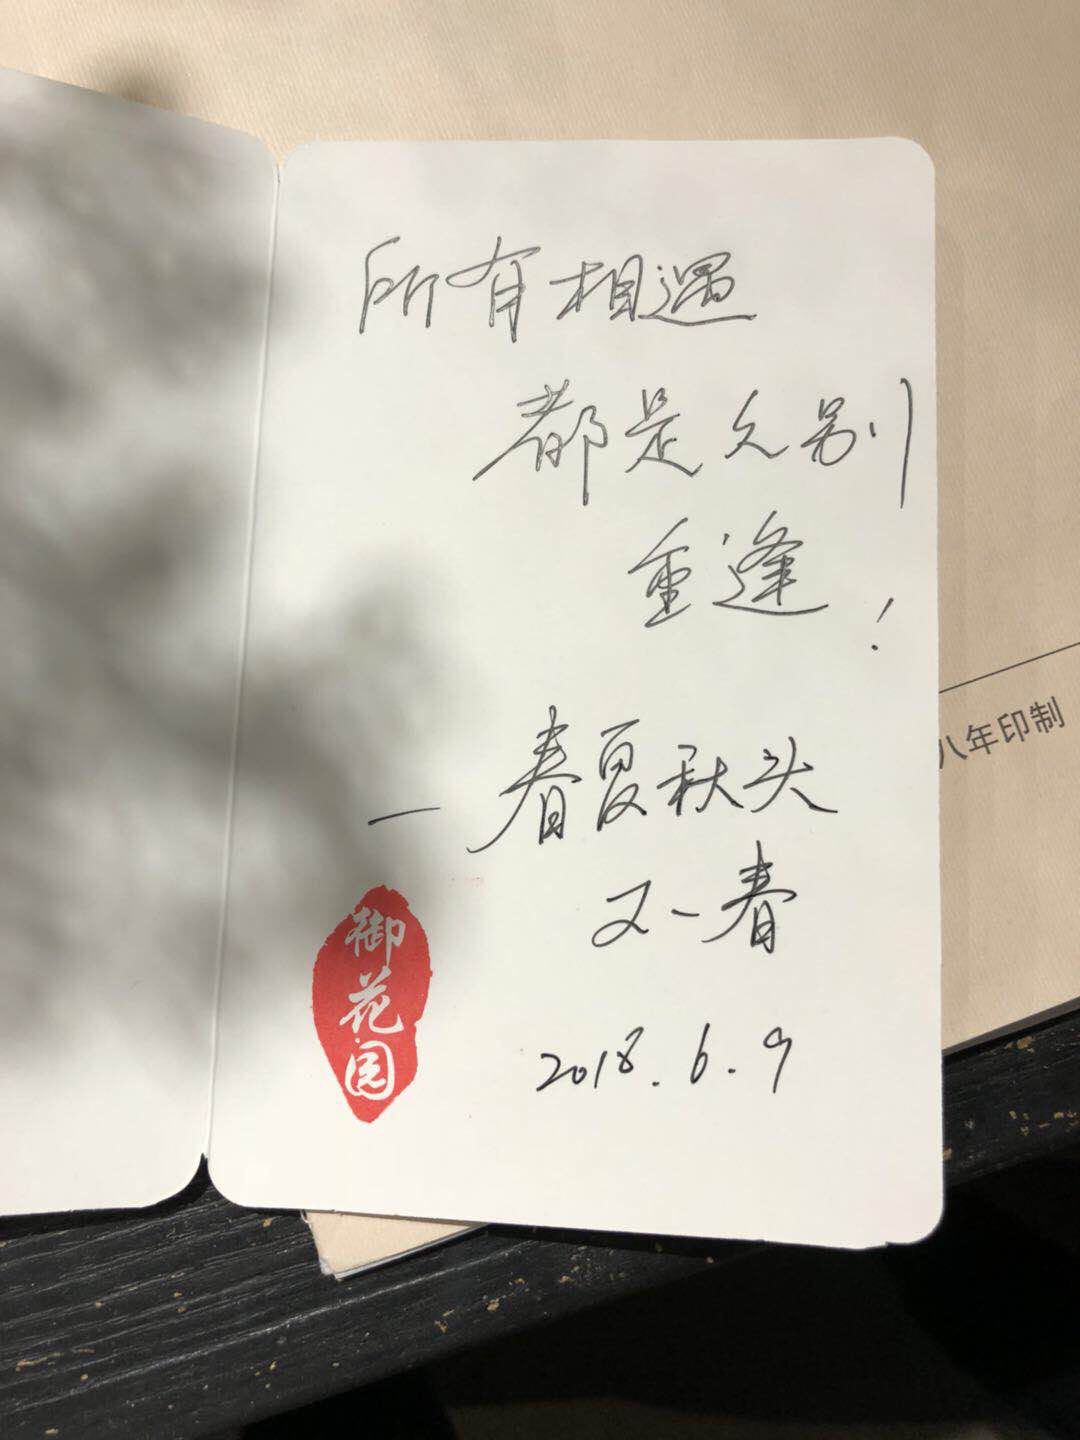 所有相遇
都是久别
重逢!
— 春夏秋冬
又一春
御花园
2018.6.9
八年印制